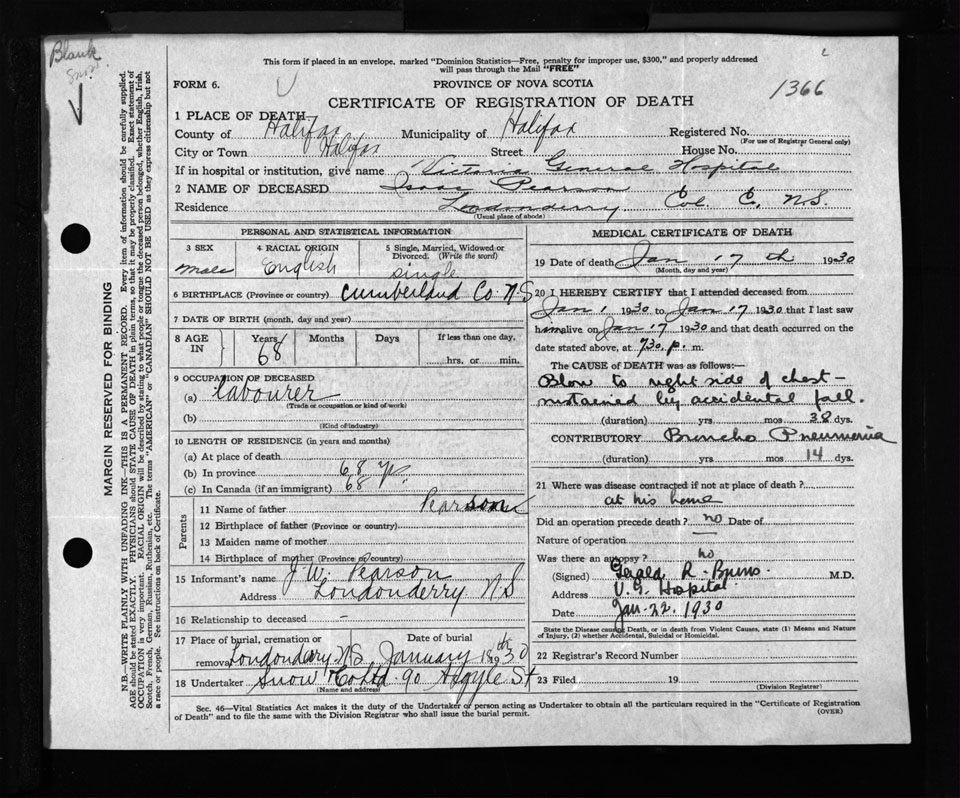 Blank
This form if placed in an envelope, marked "Dominion Statistics—Free, penalty for improper use, $300," and properly addressed
will pass through the Mail "FREE"
FORM 6.
PROVINCE OF NOVA SCOTIA
1366
CERTIFICATE OF REGISTRATION OF DEATH
1 PLACE OF DEATH
County of Halifax Municipality of Halifax Registered No.
(For use of Registrar General only)
City or Town Halifax Street House No.
If in hospital or institution, give name Victoria General Hospital
2 NAME OF DECEASED Isaac Pearson
Residence Londonderry Col. C. N.S.
(Usual place of abode)
PERSONAL AND STATISTICAL INFORMATION
3 SEX 4 RACIAL ORIGIN 5 Single, Married, Widowed or
Divorced. (Write the word)
Male English single
6 BIRTHPLACE (Province or country) Cumberland Co. N.S
7 DATE OF BIRTH (month, day and year)
8 AGE IN Years Months Days If less than one day,
68 hrs. or min.
9 OCCUPATION OF DECEASED
(a) labourer
(Trade or occupation or kind of work)
(b)
(Kind of industry)
10 LENGTH OF RESIDENCE (in years and months)
(a) At place of death
(b) In province 68 yr.
(c) In Canada (if an immigrant) 68
Parents
11 Name of father Pearson
12 Birthplace of father (Province or country)
13 Maiden name of mother
14 Birthplace of mother (Province or country)
15 Informant's name J. W. Pearson
Address Londonderry NS
16 Relationship to deceased -
17 Place of burial, cremation or Date of burial
removal Londonderry N.S. January 18th 1930
18 Undertaker Snow & Co Ltd. 90 Argyle St
(Name and address)
MEDICAL CERTIFICATE OF DEATH
19 Date of death Jan 17th 1930
(Month, day and year)
20 I HEREBY CERTIFY that I attended deceased from
Jan 1 1930 to Jan 17 1930 that I last saw
him alive on Jan 17 1930 and that death occurred on
date stated above, at 7.30. p. m.
The CAUSE of DEATH was as follows:—
Blow to right side of chest—
sustained by accidental fall.
(duration) yrs mos 38 dys.
CONTRIBUTORY Broncho Pneumonia
(duration) yrs mos 14 dys.
21 Where was disease contracted if not at place of death?
at his home
Did an operation precede death? no Date of
Nature of operation —
Was there an autopsy? no
(Signed) Gerald R. M.D.
Address V.G. Hospital
Date Jan. 22. 1930
State the Disease causing Death, or in death from Violent Causes, state (1) Means and Nature
of Injury, (2) whether Accidental, Suicidal or Homicidal.
22 Registrar's Record Number
23 Filed 19
(Division Registrar)
Sec. 46—Vital Statistics Act makes it the duty of the Undertaker or person acting as Undertaker to obtain all the particulars required in the "Certificate of Registration
of Death" and to file the same with the Division Registrar who shall issue the burial permit.
(OVER)
MARGIN RESERVED FOR BINDING
N.B.—WRITE PLAINLY WITH UNFADING INK—THIS IS A PERMANENT RECORD. Every item of information should be carefully supplied.
AGE should be stated EXACTLY. PHYSICIANS should STATE CAUSE OF DEATH in plain terms, so that it may be properly classified. Exact statement of
OCCUPATION is very important. RACIAL ORIGIN will be described by stating to what people or tongue the deceased person belonged, whether English, Irish,
Scotch, French, German, Russian, Ruthenian, etc. The terms "AMERICAN" or "CANADIAN" SHOULD NOT BE USED as they express citizenship but not
a race or people. See instructions on back of Certificate.